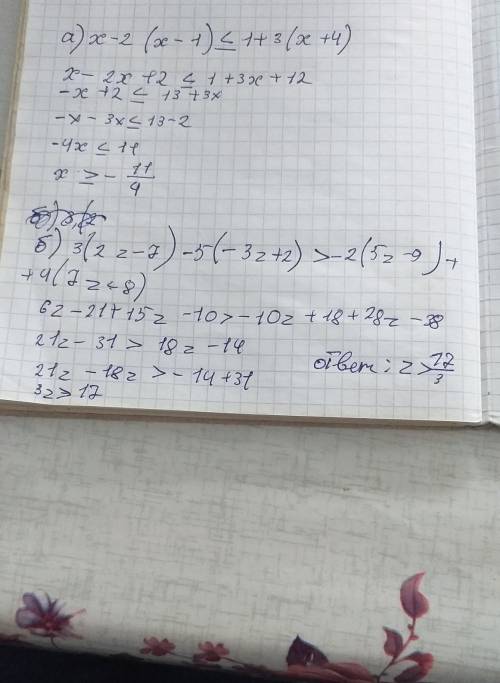 а) x-2 (x-1) ≤ 1+3(x+4)
x- 2x+2 ≤ 1+3x+12
-x+2 ≤ 13+3x
-x-3x ≤ 13-2
-4x ≤ 11
x ≥ - 11/4
б) 3(2z-7)-5(-3z+2) >-2(5z-9)+
+4(7z-8)
6z-21+15z -10>-10z+18+28z-38
21z-31 > 18z -14
21z -18z >-14+31
3z>17
ответ: z> 17/3